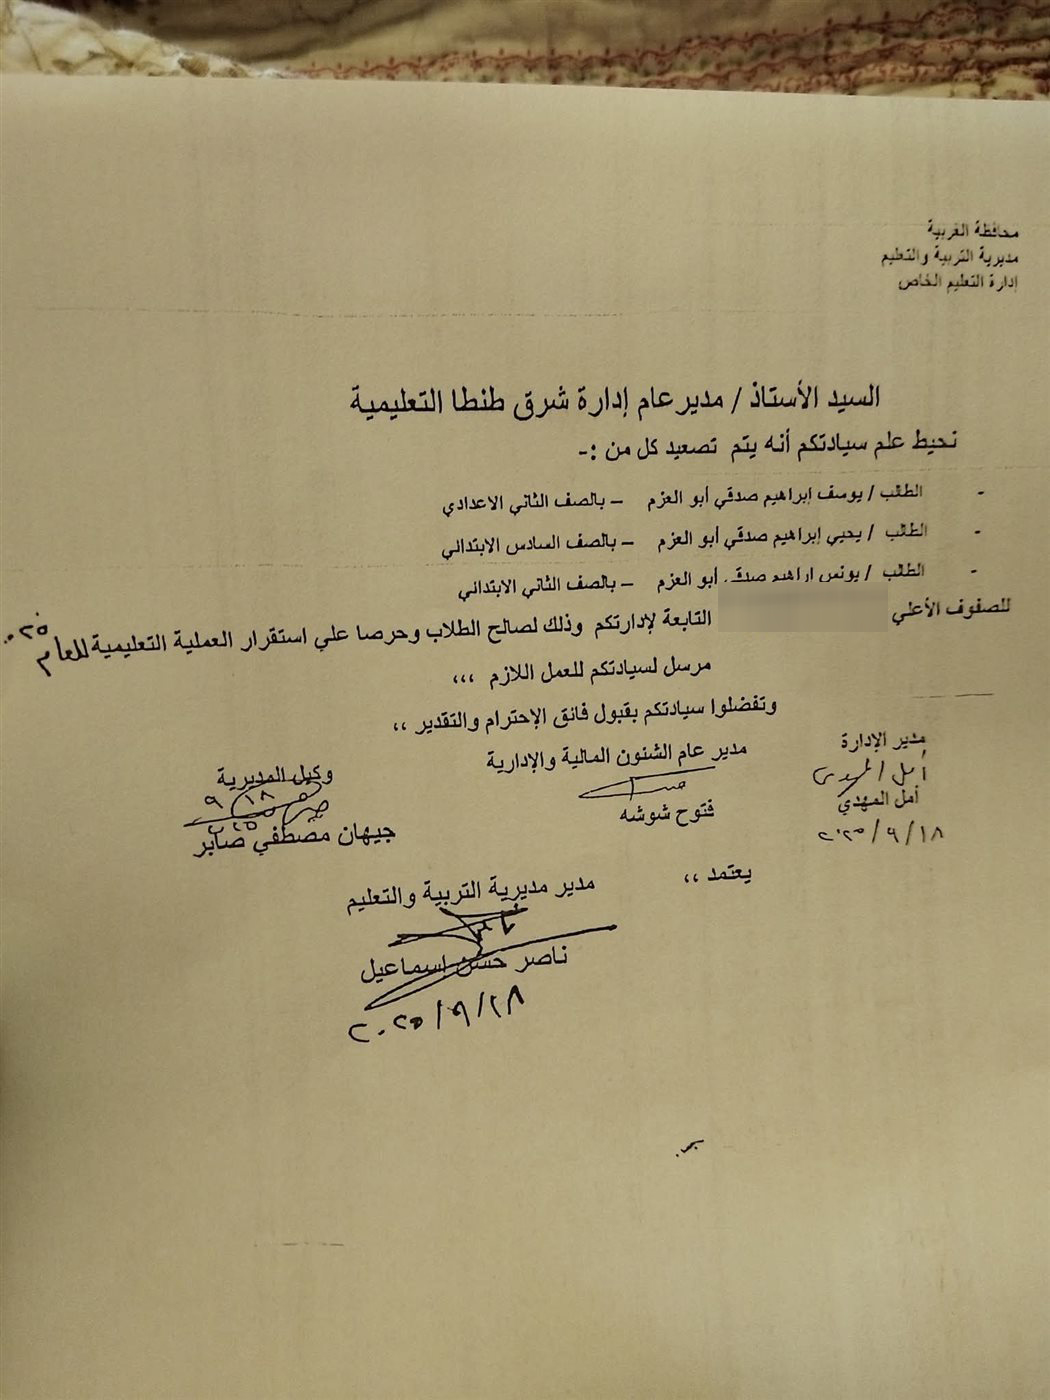 محافظة الغربية
مديرية التربية والتعليم
إدارة التعليم الخاص
السيد الأستاذ / مدير عام إدارة شرق طنطا التعليمية
نحيط علم سيادتكم أنه يتم تصعيد كل من :-
- الطالب / يوسف إبراهيم صدقي أبو العزم – بالصف الثاني الاعدادي
- الطالب / يحيي إبراهيم صدقي أبو العزم – بالصف السادس الابتدائي
- الطالب / يونس إبراهيم صدقي أبو العزم – بالصف الثاني الابتدائي
للصفوف الأعلي التابعة لإدارتكم وذلك لصالح الطلاب وحرصا علي استقرار العملية التعليمية للعام
مرسل لسيادتكم للعمل اللازم ،،،
وتفضلوا سيادتكم بقبول فائق الإحترام والتقدير ،،
مدير الإدارة
أمل المهدي
أمل المهدي
٢٠٢٥/٩/١٨
مدير عام الشئون المالية والإدارية
فتوح شوشه
وكيل المديرية
٩ ١٨
٢٠٢٥
جيهان مصطفي صابر
يعتمد ،،
مدير مديرية التربية والتعليم
ناصر حسن إسماعيل
٢٠٢٥/٩/١٨